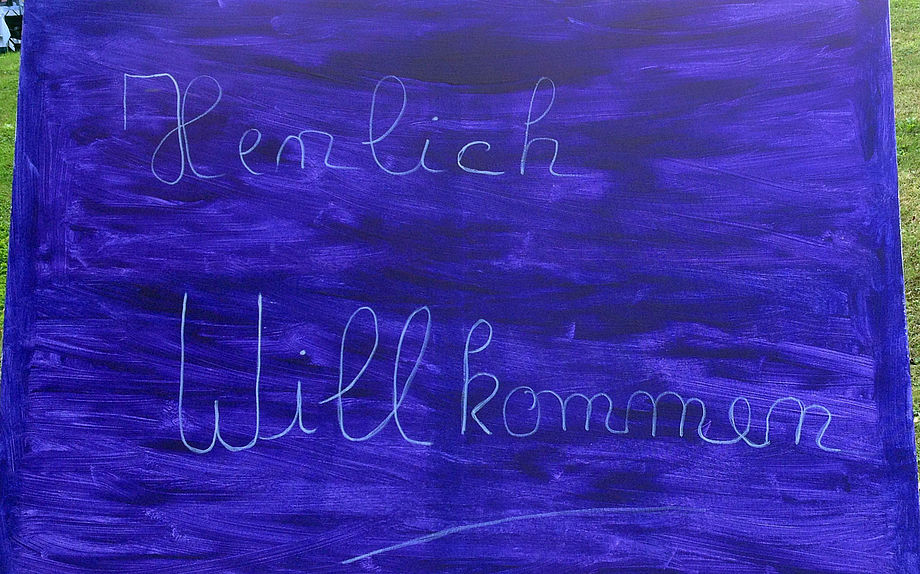 Henlich
Willkommen